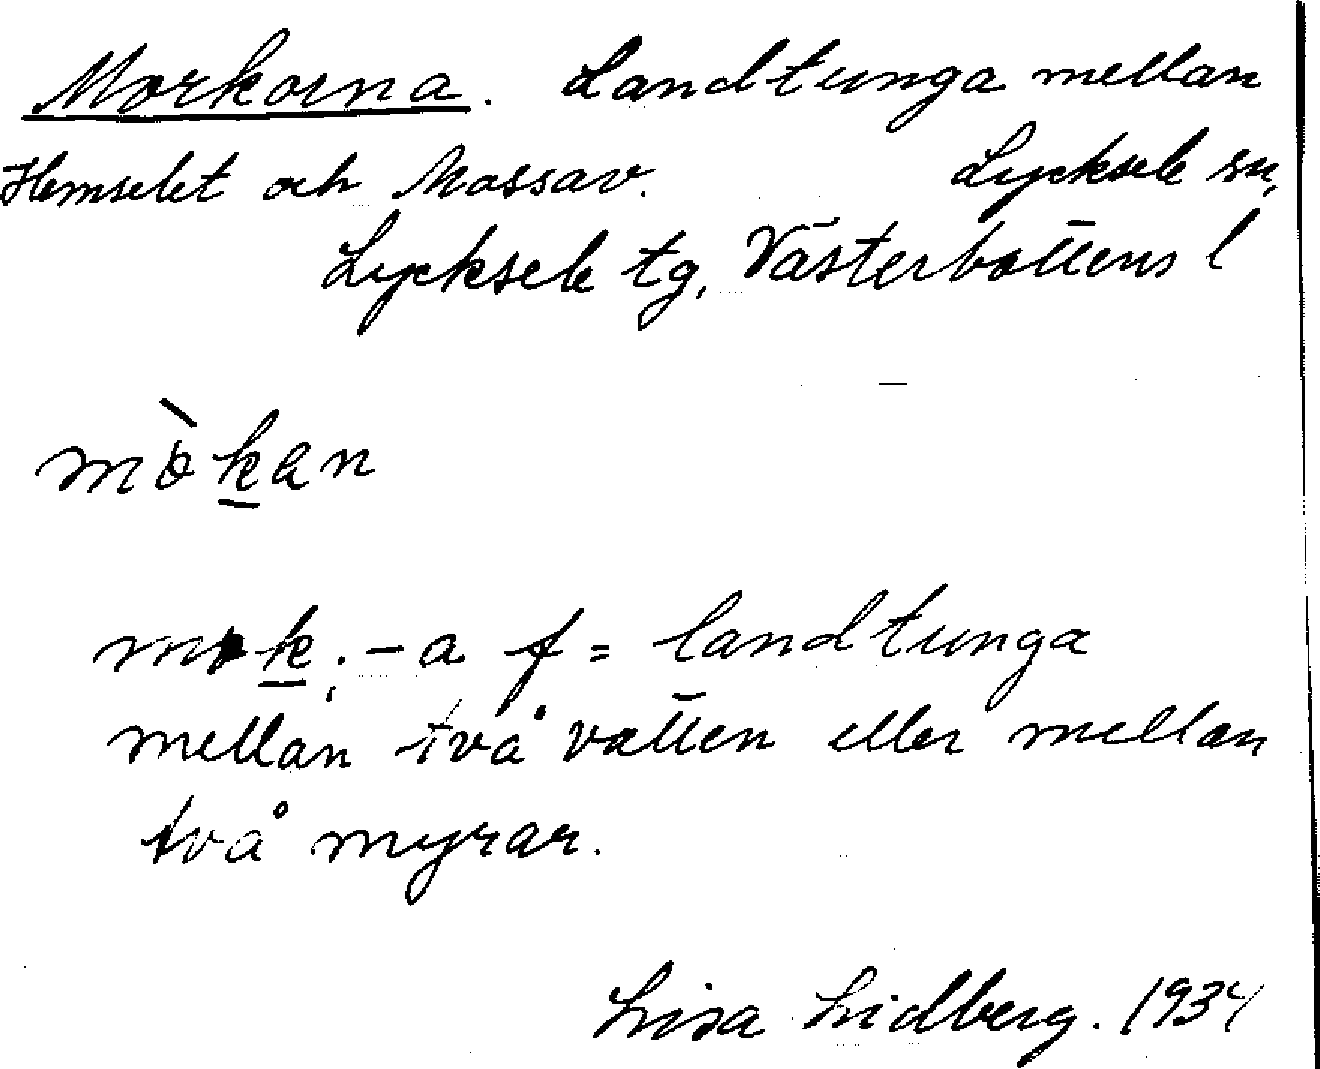 Morkorna. Landtunga mellan
Hemselet och Mossav. Lycksele sn,
Lycksele tg, Västerbottens l
mòkan
mok; -a f = landtunga
mellan två vatten eller mellan
två myrar.
Lisa Lidberg. 1934